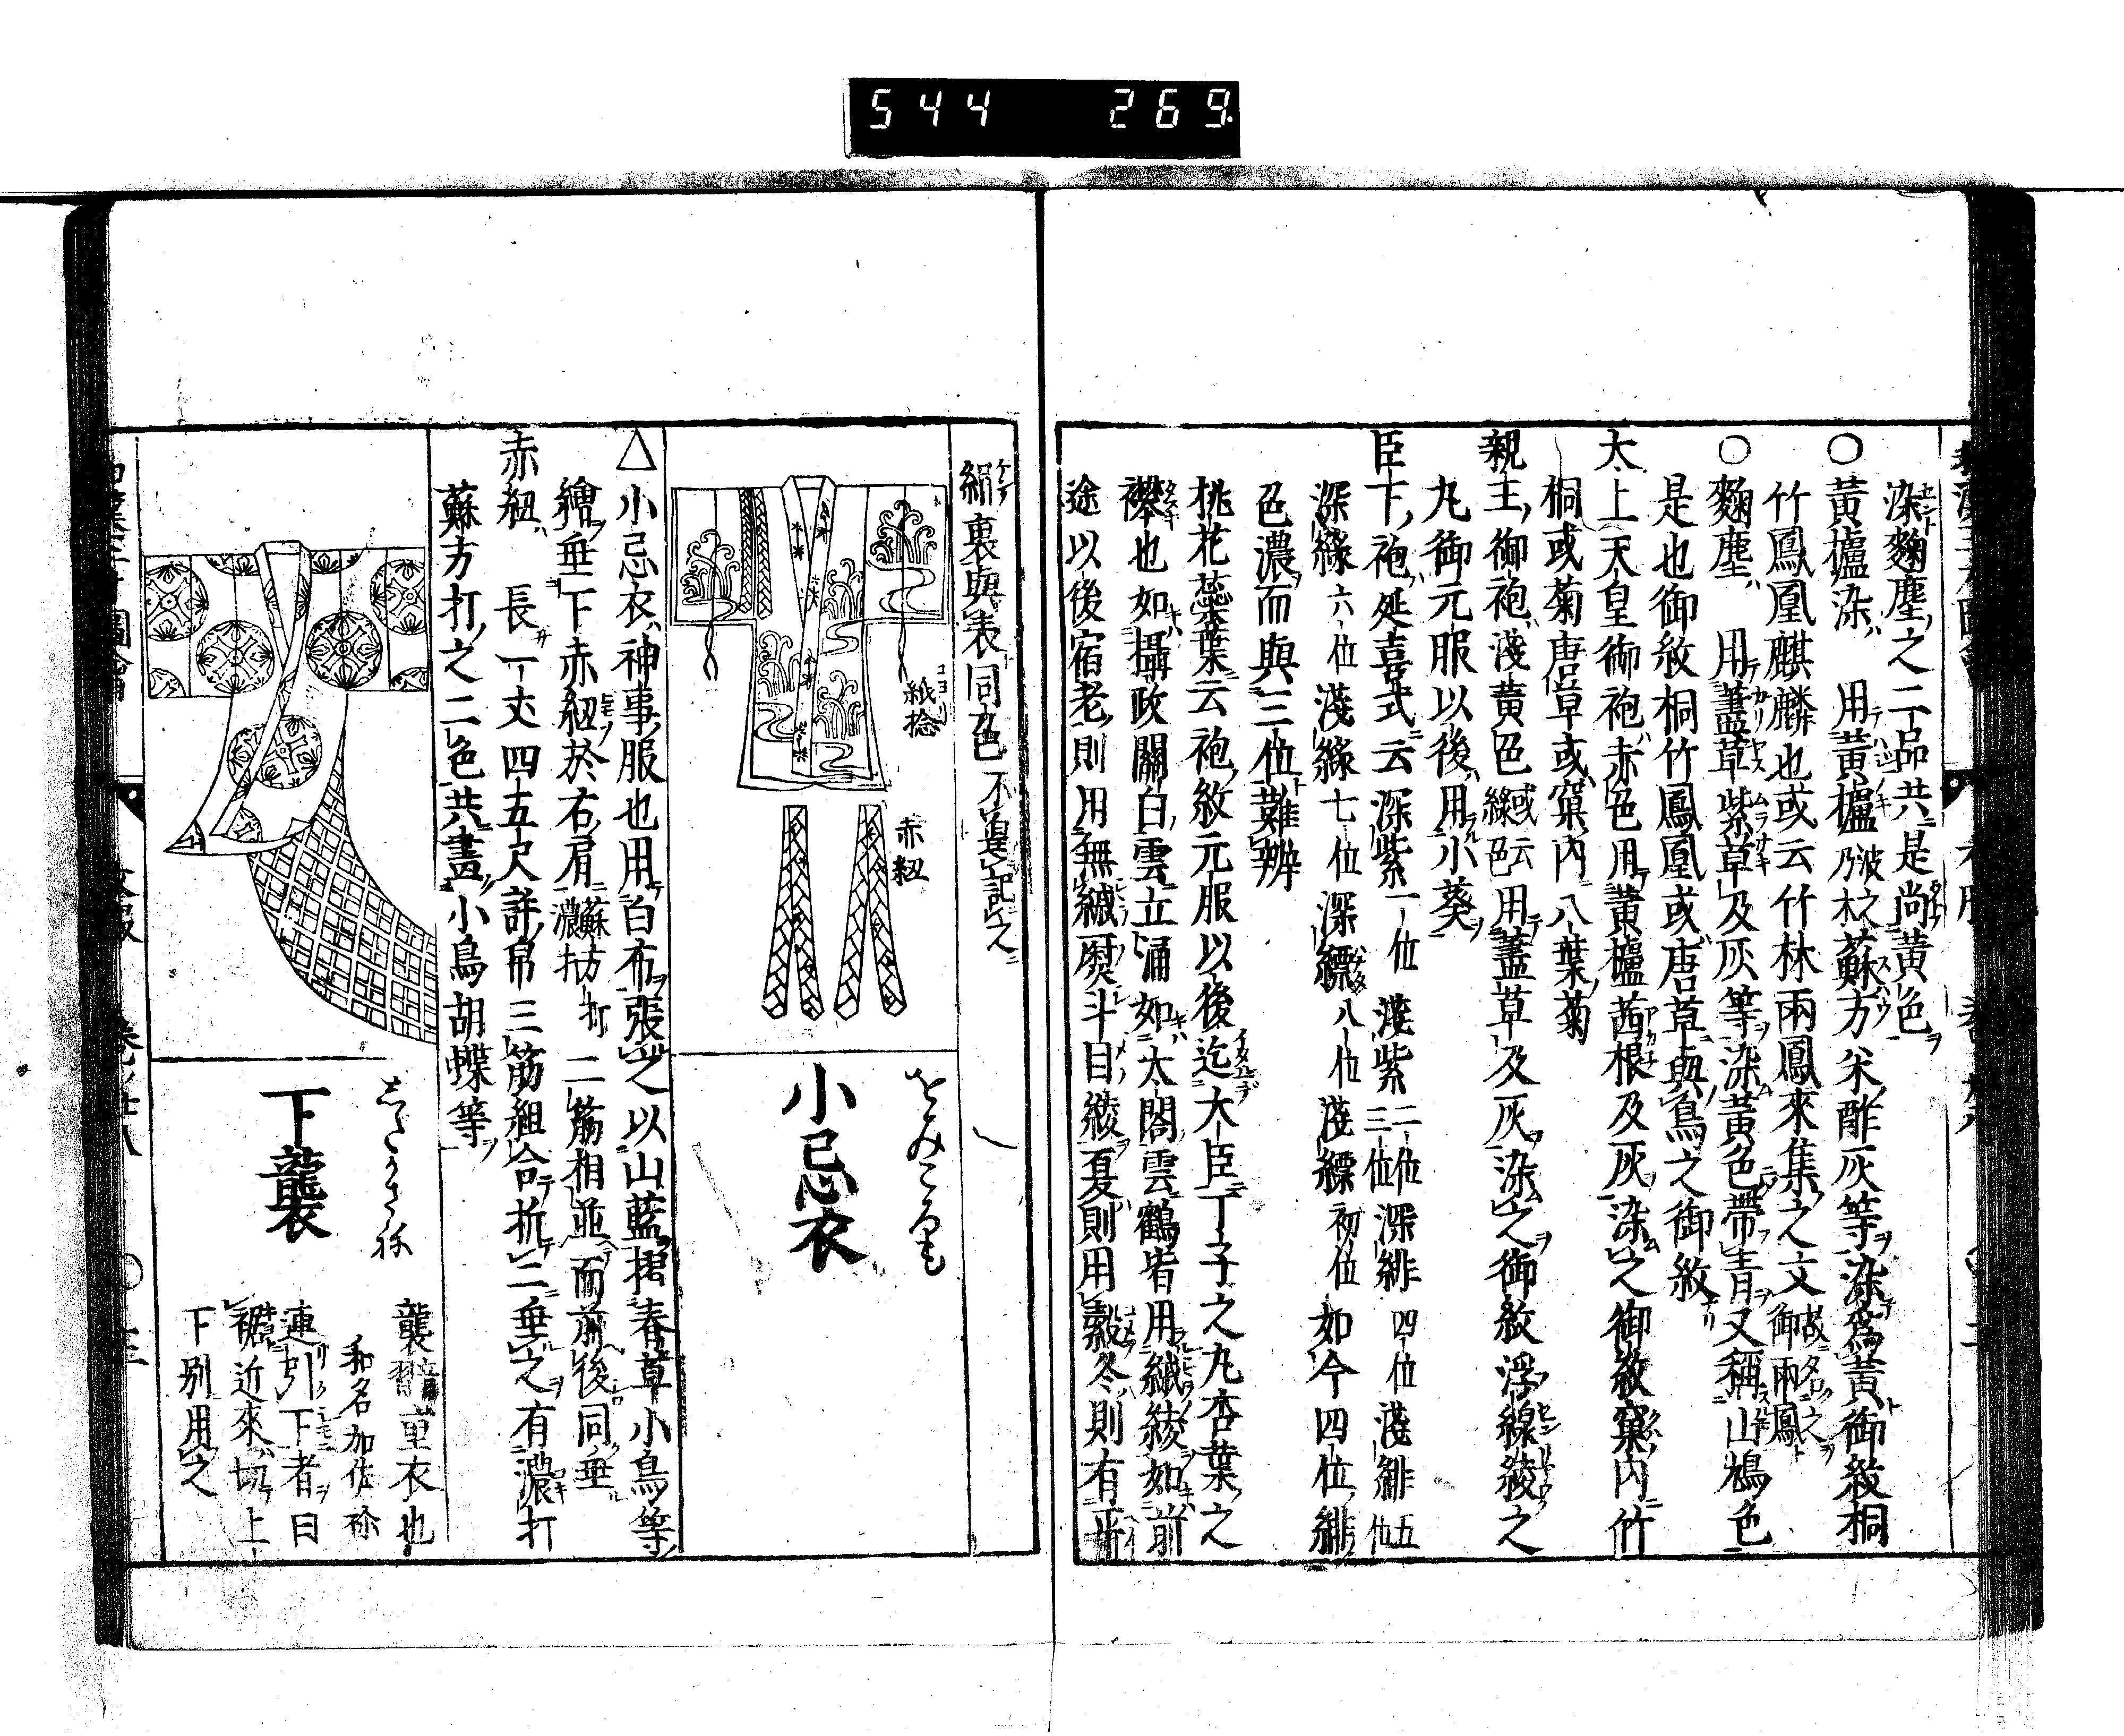 544 269
染麴塵之二品共是尚黃色
○黃櫨染 用黃櫨乃波之木蘇方米酢灰等染爲黃御紋桐
竹鳳凰麒麟也或云竹林兩鳳來集之文故名之御兩鳳
○麴塵 用藎草紫草及灰等染黃色帶青又稱山鳩色
是也御紋桐竹鳳凰或唐草與鳥之御紋
太上天皇御袍赤色用黃櫨茜根及灰染之御紋窠內竹
桐或菊唐草或窠內八葉菊
親王御袍淺黃色或云綠色用藎草及灰染之御紋浮線綾之
丸御元服以後用小葵
臣下袍延喜式云深紫一位 淺紫二位三位深緋四位淺緋五位
深綠六位淺綠七位深縹八位淺縹初位如今四位緋
色濃而與三位難辨
桃花蘂葉云袍紋元服以後迄大臣丁子之丸杏葉之
襷也如攝政關白雲立涌如太閤雲鶴皆用綾如前
途以後宿老則用無熨斗目綾夏則用縠冬則有
絹裏與表同色不遑記之
紙捻
赤紐
をみころも
小忌衣
△小忌衣神事服也用白布張之以山藍摺春草小鳥等
繪垂下赤紐於右肩蘇方打濃打二筋相並而前後同垂
赤紐 長一丈四五尺許帛三筋組合折二垂之有濃打
蘇方打之二色共畫小鳥胡蝶等
したかさね
下襲
襲音習重衣也
和名加佐祢
連引下者曰
裾近來切上
下別用之